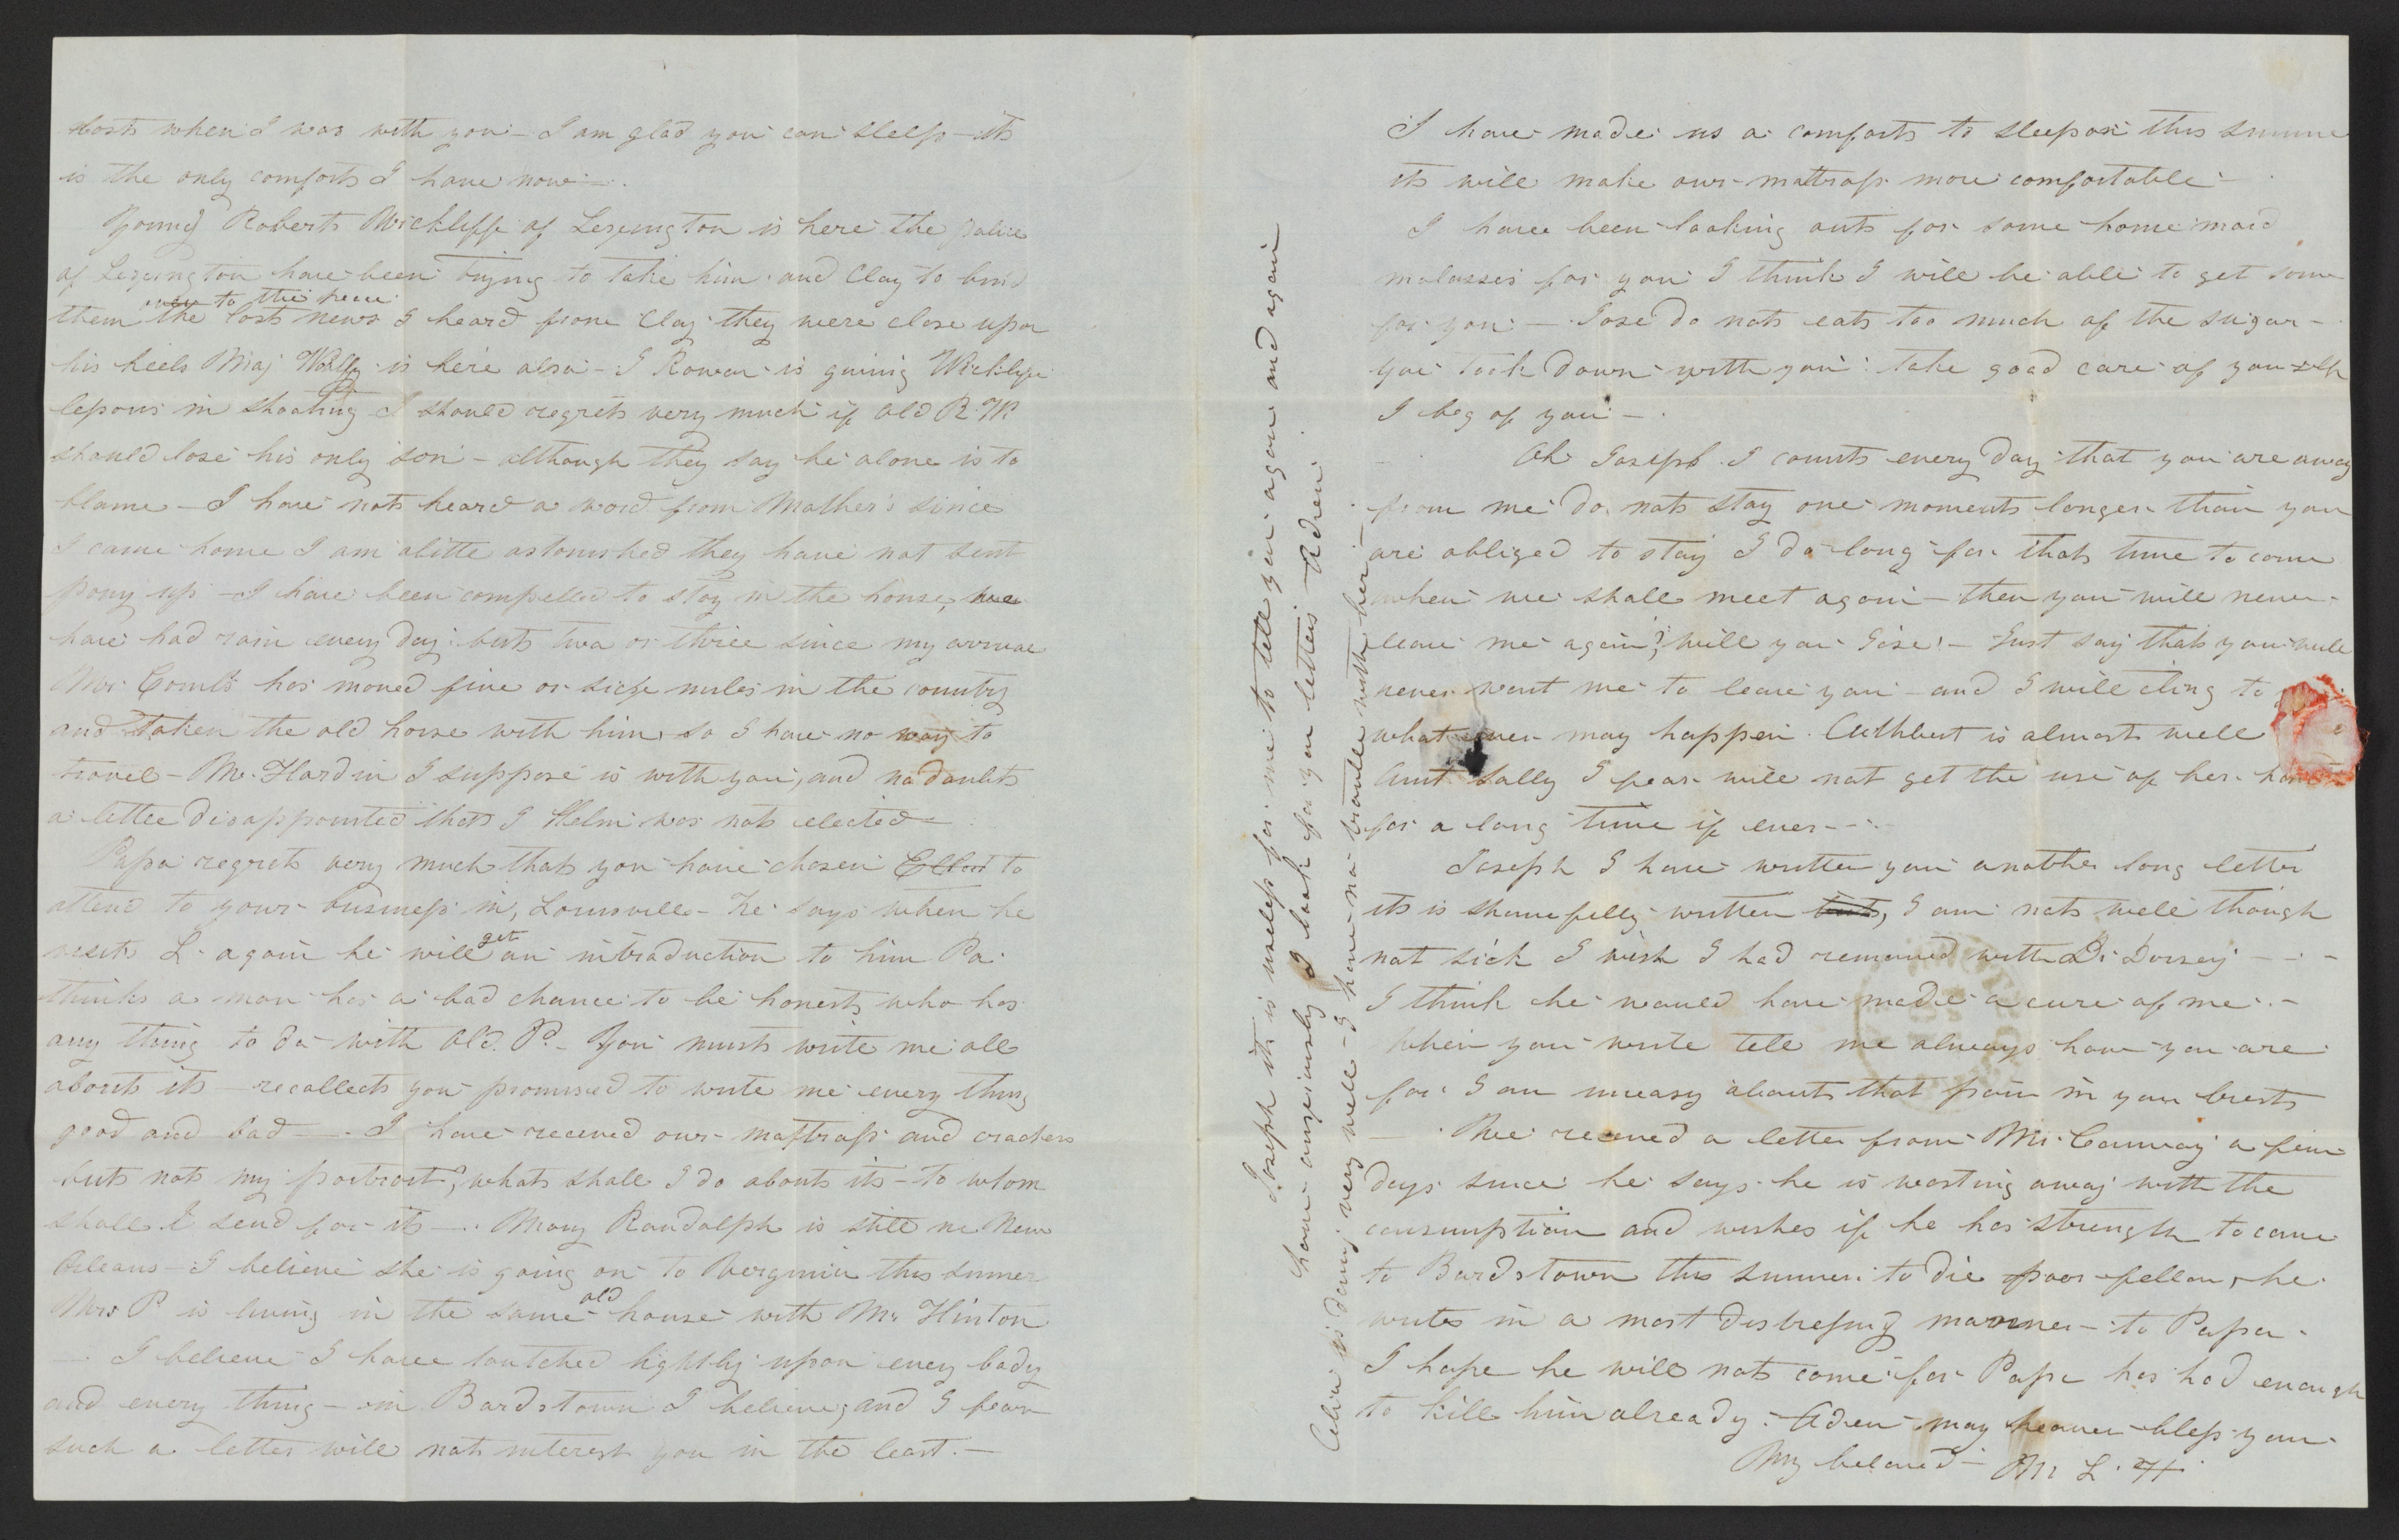 when I was with you - I am glad you can sleep - its
is the only comforts I have now -
Young Roberts Wickliffe of Lexington is here the police
of Lexington have been trying to take him and Clay to bind
over to the peace
them the last news I heard from Clay they were close upon
his heels Maj is here also - J Rowan is giving Wickliffe
lessons in shooting I should regrets very much if Old R. W.
should lose his only son - although they say he alone is to
blame - I have nots heard a word from Mother's since
I came home I am a little astonished they have not sent
pony up - I have been compelled to stay in the house, we
have had rain every day buts two or three since my arrival
Combs has moved five or six miles in the country
and taken the old horse with him, so I have no way to
travel - Mr. Hardin I suppose is with you, and no doubts
a little disappointed thats J Helm was nots elected -
Papa regrets very much thats you have chosen to
attend to your business in, Louisville - He says when he
visits L. again he will get an introduction to him Pa.
thinks a man has a bad chance to be honests who has
any thing to do with Old. P. - You musts write me all
abouts its - recollects you promised to write me every thing
good and bad - . I have received our mattrass and crackers
buts nots my portrait, whats shall I do abouts its - to whom
shall I send for its - . Mary Randolph is still in New
Orleans - I believe she is going on to Verginia this sumer
Mrs P is living in the same old house with Mr Hinton
- I believe I have toutched lightly upon every body
and every thing - in Bardstown I believe, and I fear
such a letter will nots interest you in the least. -
I have made us a comforts to sleep on this summe
its will make our mattrass more comfortable -
I have been looking outs for some home maid
molasses for you I think I will be able to get some
for you - Jose do nots eats too much of the sugar -
you took down with you: take good care of yourself
I beg of you - .
Oh Joseph. I counts every day that you are away
from me do nots stay one moments longer than you
are obliged to stay I do long for thats time to come
when we shall meet again - then you will never
leave me again, will you Jose! - Just say thats you will
never want me to leave you - and I will cling to
what ever may happen. Cuthbert is almosts well
Aunt Sally I fear will not get the use of her
for a long time if ever - .
Joseph I have written you another long letter
its is shamefully written buts, I am nots well though
not sick I wish I had remained with Dr Dorsey - . -
I think he would have made a cure of me. -
When you write tell me always how you are
for I am uneasy abouts that pain in your brests
- . We received a letter from Mr. Conway a few
days since he says he is wasting away with the
consumption and wishes if he has strength to come
to Bardstown this summer to die poor fellow, he
writes in a most distressing manner - to Papa -
I hope he will nots come for Papa has had enough
to kill him already. Adieu may heaven bless you
My beloved - M. L. H.
Joseph its is useless for me to tell you again and again
how anxiously I look for your letters Adieu.
is doing very well - I have no trouble with her -